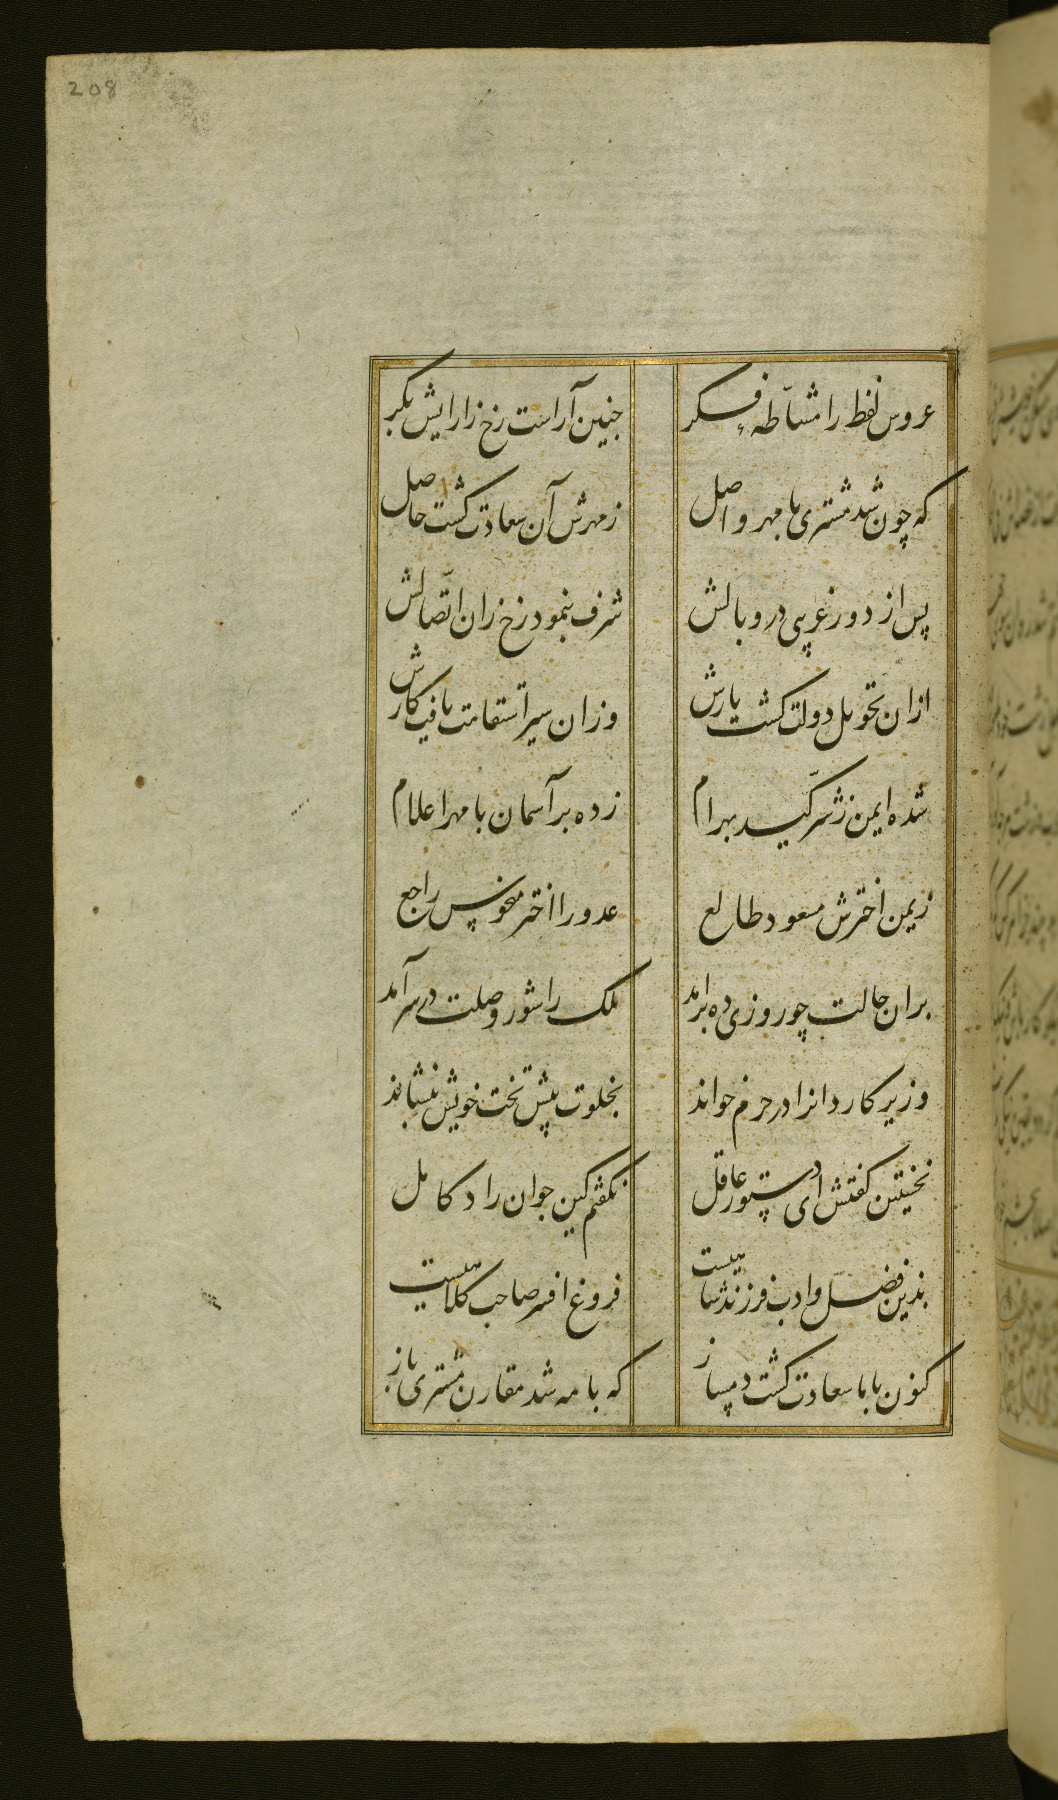 208
عروس لفظ را مشّاطهٔ فکر چنین آراست رخ زارایش بکر
که چون شد مشتری با مهر واصل زمهرش آن سعادت کشت حاصل
پس از دور غریبی در وبالش شرف بنمود رخ زان اتّصالش
ازان تحویل دولت کشت یارش وزان سیر استقامت یافت کارش
شده ایمن ز شرّ کید بهرام زده بر آسمان با مهر اعلام
زیمن اخترش مسعود طالع عدو را اختر منحوس راجع
بران حالت چو روزی ده برامد ملک را شور وصلت در سر آمد
وزیر کاردانرا در حرم خواند بخلوت پیش تخت خویش بنشاند
نخستین کفتش ای دستور عاقل نکفتم کین جوان راد کامل
بذین فضل و ادب فرزند شاهیست فروغ افسر صاحب کلاهیست
کنون بابا سعادت کشت دمساز که با مه شد مقارن مشتری باز